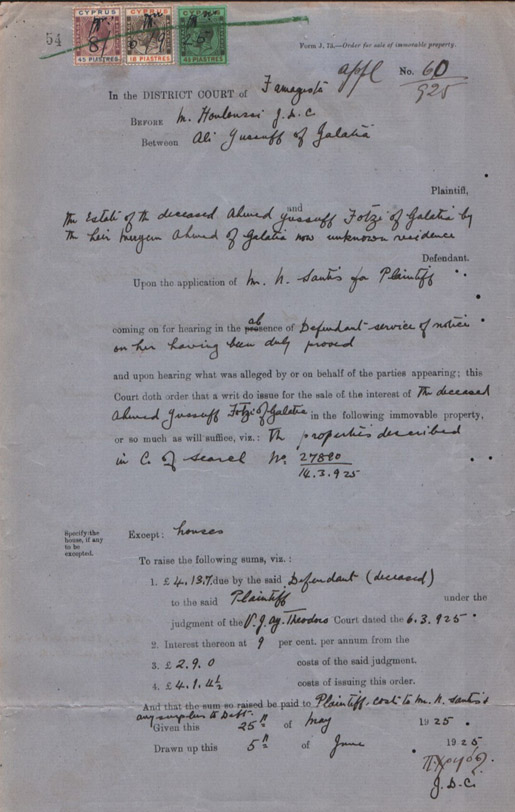 54
CYPRUS CYPRUS CYPRUS
45 PIASTRES 18 PIASTRES 45 PIASTRES
Form J. 15.—Order for sale of immovable property.
appl No. 60
925
In the DISTRICT COURT of Famagusta
BEFORE M. Houloussi J.D.C
Between Ali Yussuff of Galatia
Plaintiff,
and
The Estate of the deceased Ahmed Yussuff Fotzi of Galatia by
the heir Meryem Ahmed of Galatia now unknown residence
Defendant.
Upon the application of Mr. N. Santis for Plaintiff
coming on for hearing in the absence of Defendant service of notice
on her having been duly proved
and upon hearing what was alleged by or on behalf of the parties appearing; this
Court doth order that a writ do issue for the sale of the interest of the deceased
Ahmed Yussuff Fotzi of Galatia in the following immovable property,
or so much as will suffice, viz.: The properties described
in C. of search No. 27890
14.3.925
Specify the
house, if any
to be
excepted.
Except: houses
To raise the following sums, viz.:
1. £ 4.13.7. due by the said Defendant (deceased)
to the said Plaintiff under the
judgment of the V.J. Ay. Theodoro Court dated the 6.3.925.
2. Interest thereon at 9 per cent. per annum from the
3. £ 2.9.0 costs of the said judgment.
4. £ 4.1.4½ costs of issuing this order.
And that the sum so raised be paid to Plaintiff, cost to Mr. N. Santis &
any surplus to Deft.
Given this 25th of May 1925.
Drawn up this 5th of June 1925
J.D.C.